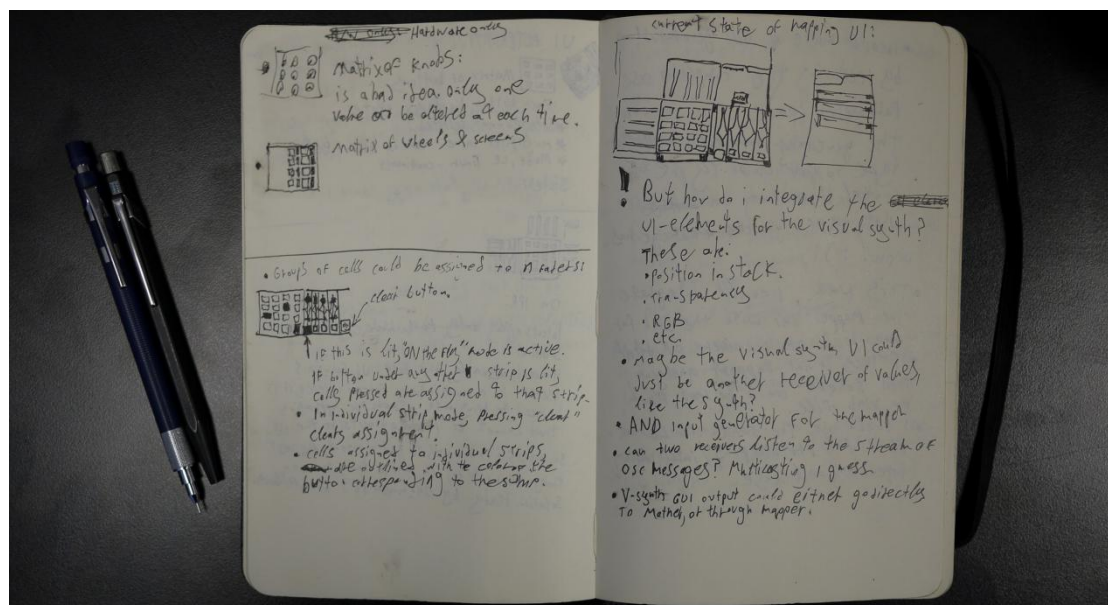 Hardware only
Matrix of knobs:
is a bad idea. only one
value can be altered at each time.
Matrix of wheels & screens
• Groups of cells could be assigned to n faders:
clear button.
If this is lit, "ON the Fly" mode is active.
If button under any other strip is lit,
cells pressed are assigned to that strip.
• In individual strip mode, pressing "clear"
clears assignment.
• cells assigned to individual strips,
are outlined with te color of the
button corresponding to the
current state of mapping UI:
! But how do i integrate the
UI-elements for the visual synth?
These are:
• position in stack.
• Transparency
• RGB
• etc.
• maybe the visual synth UI could
just be another receiver of values,
like the synth?
• AND input generator for the mapper
• can two receivers listen to the stream of
osc messages? Multicasting I guess.
• V-synth GUI output could either go directly
to Mother, or through mapper.